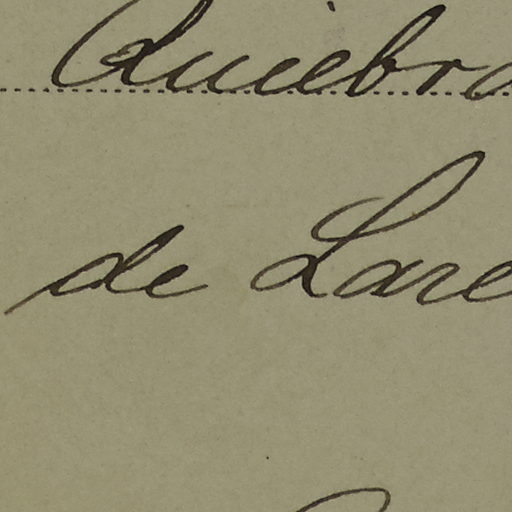 Quiebra
de Lare